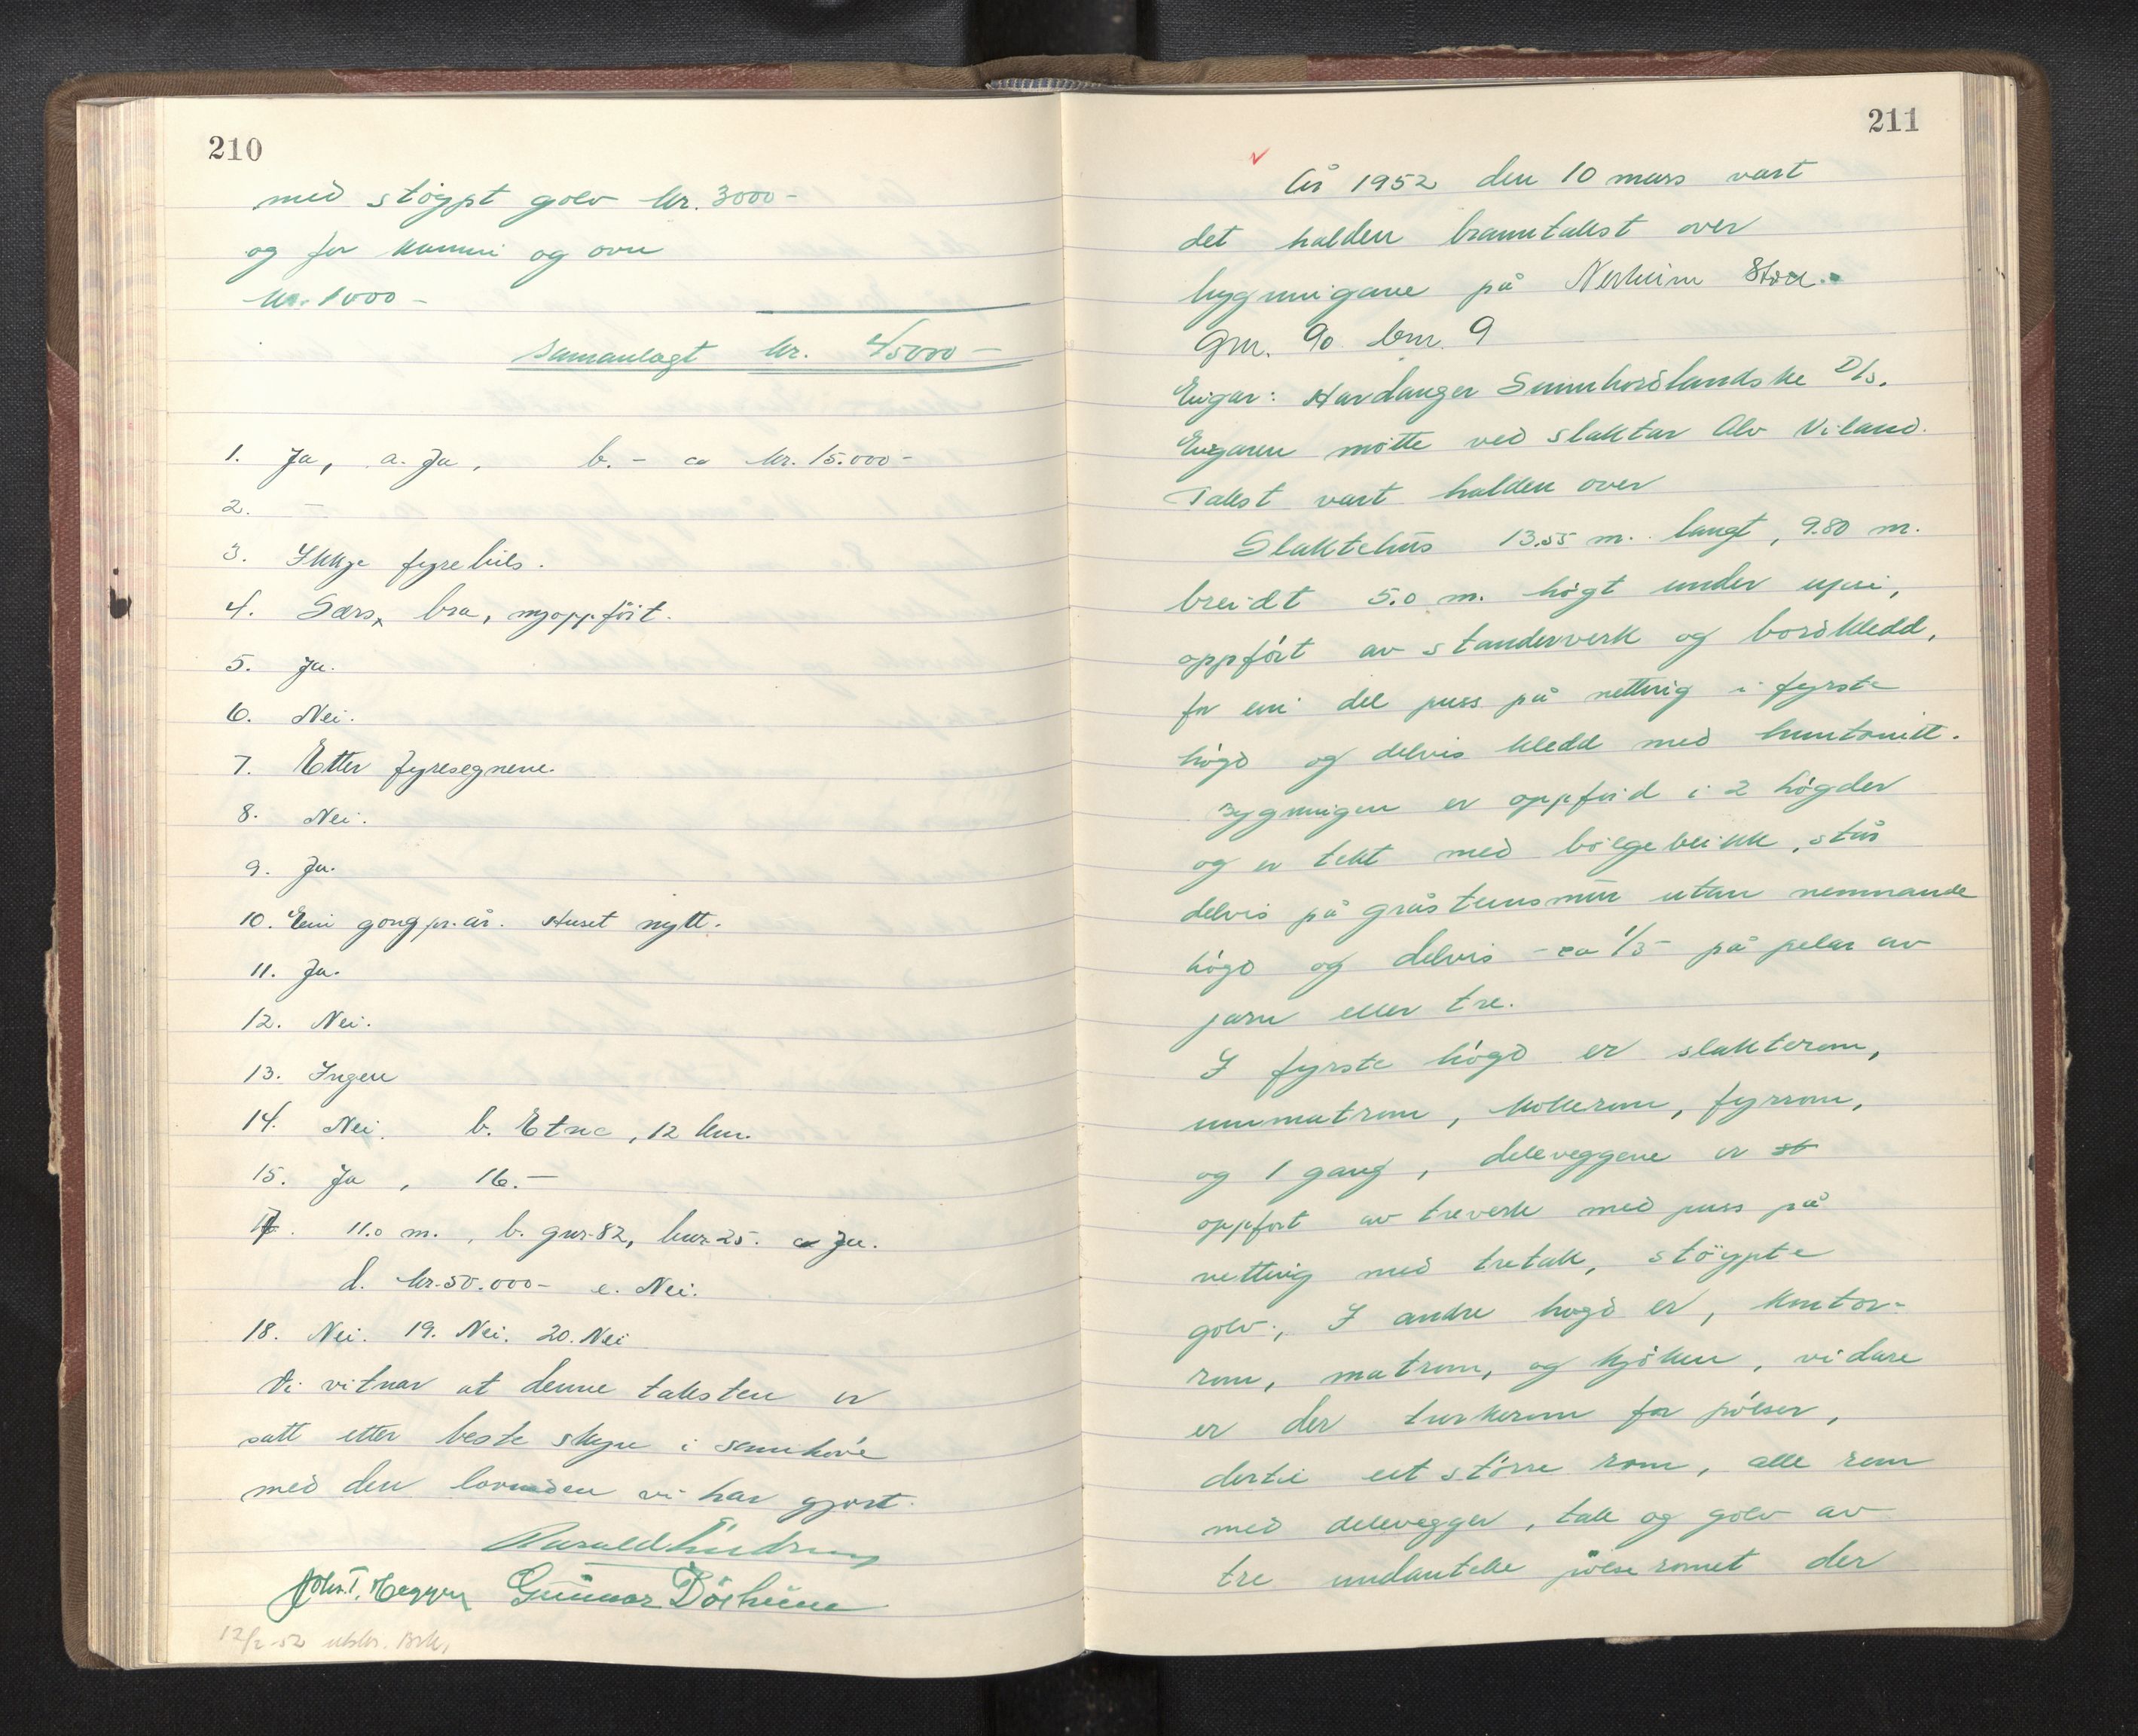 210
med støypt golv kr. 3000-
og for kamin og ovn
kr. 1000-
samanlagt kr. 45000-
1. Ja, a. Ja, b. - ca kr. 15.000-
2. -
3. Ikkje fyrebils.
4. Særs bra, nyoppført.
5. Ja.
6. Nei.
7. Etter fyresegnene.
8. Nei.
9. Ja.
10. Ein gong pr. år. Huset nytt.
11. Ja.
12. Nei.
13. Ingen
14. Nei. b. Etne, 12 km.
15. Ja, 16. -
17. 11.0 m., b. gnr. 82, bnr. 25. c Ja.
d. kr. 50.000- e. Nei.
18. Nei. 19. Nei. 20. Nei
Vi vitnar at denne taksten er
satt etter beste skyn i samhøve
med den lovnaden vi har gjort.
Harald
John T. Gunnar
12/2-52 utskr.
211
År 1952 den 10 mars vart
det halden branntakst over
bygningane på Nerheim
Gnr. 90 bnr. 9
Eigar: Hardanger Sunnhordlandske D/s.
Eigaren møtte ved slaktar Alv Viland.
Takst vart halden over
Slaktehus 13.55 m. langt, 9.80 m.
breidt 5.0 m. høgt under upsi,
oppført av standerverk og bordkledd,
for ein del puss på netting i fyrste
høgd og delvis kledd med huntonitt.
Bygningen er oppførd i 2 høgder
og er tekt med bølgeblikk, står
delvis på gråsteinsmur utan nemnande
høgd og delvis - ca 1/3 - på pelar av
jarn eller tre.
I fyrste høgd er slakterom,
innmatrom, kokerom, fyrrom,
og 1 gang, deleveggene er st
oppført av treverk med puss på
netting med tretak, støypte
golv., I andre høgd er, kontor-
rom, matrom, og kjøken, vidare
er der turkerom for pølser,
dertil eit større rom, alle rom
med delevegger, tak og golv av
tre undanteke pølseromet der